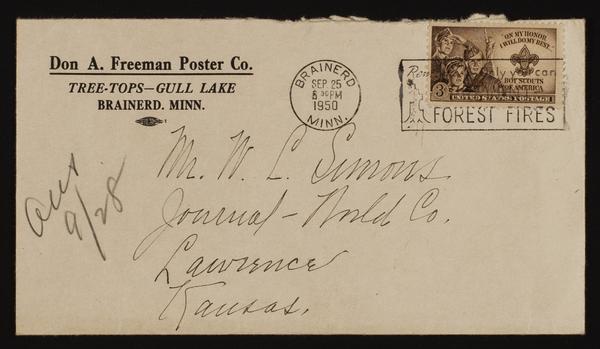 Don A. Freeman Poster Co.
TREE-TOPS—GULL LAKE
BRAINERD. MINN.
BRAINERD
SEP 25
PM
1950
MINN.
"ON MY HONOR
I WILL DO MY BEST"
ly you can
BOY SCOUTS
OF AMERICA
3¢
UNITED STATES POSTAGE
FOREST FIRES
Mr. W. L. Simons
Journal-World Co.
Lawrence
Kansas.
ans
9/28